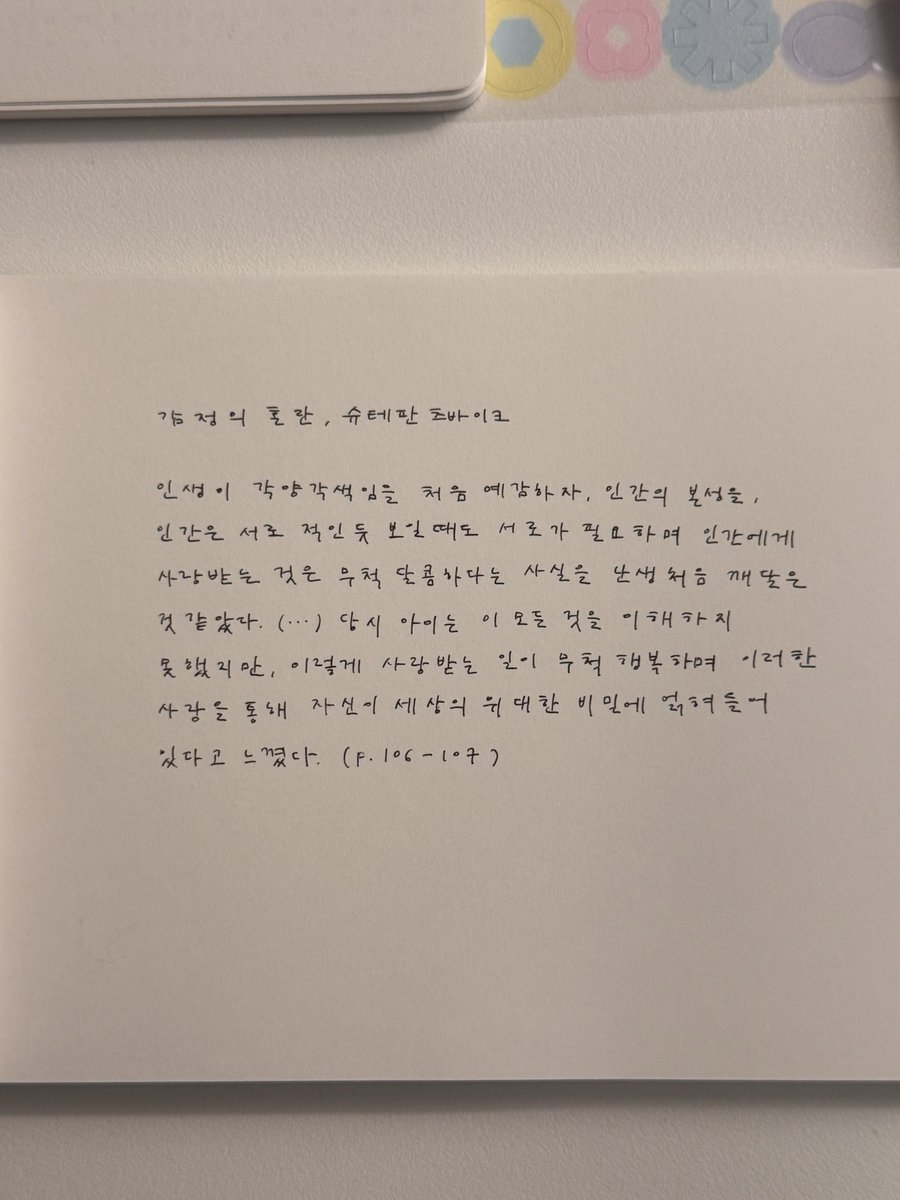 감정의 혼란, 슈테판 츠바이크
인생이 각양각색임을 처음 예감하자, 인간의 본성을,
인간은 서로 적인 듯 보일 때도 서로가 필요하며 인간에게
사랑받는 것은 무척 달콤하다는 사실을 난생처음 깨달은
것 같았다. (…) 당시 아이는 이 모든 것을 이해하지
못했지만, 이렇게 사랑받는 일이 무척 행복하며 이러한
사랑을 통해 자신이 세상의 위대한 비밀에 얽혀들어
있다고 느꼈다. (p.106-107)